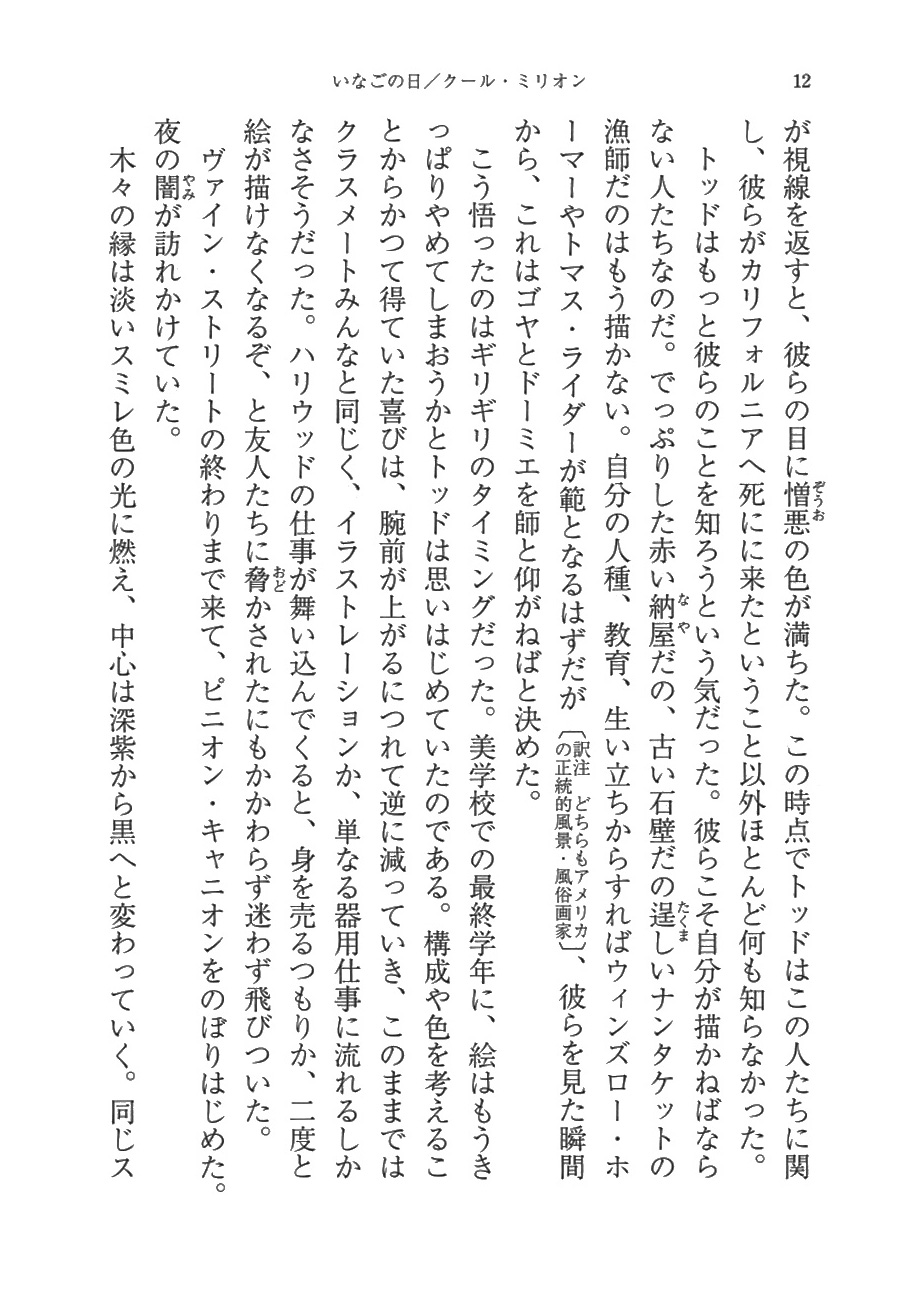 いなごの日／クール・ミリオン
12
が視線を返すと、彼らの目に憎悪の色が満ちた。この時点でトッドはこの人たちに関
し、彼らがカリフォルニアへ死にに来たということ以外ほとんど何も知らなかった。
　トッドはもっと彼らのことを知ろうという気だった。彼らこそ自分が描かねばなら
ない人たちなのだ。でっぷりした赤い納屋だの、古い石壁だの逞しいナンタケットの
漁師だのはもう描かない。自分の人種、教育、生い立ちからすればウィンズロー・ホ
ーマーやトマス・ライダーが範となるはずだが〔訳注　どちらもアメリカの正統的風景・風俗画家〕、彼らを見た瞬間
から、これはゴヤとドーミエを師と仰がねばと決めた。
　こう悟ったのはギリギリのタイミングだった。美学校での最終学年に、絵はもうき
っぱりやめてしまおうかとトッドは思いはじめていたのである。構成や色を考えるこ
とからかつて得ていた喜びは、腕前が上がるにつれて逆に減っていき、このままでは
クラスメートみんなと同じく、イラストレーションか、単なる器用仕事に流れるしか
なさそうだった。ハリウッドの仕事が舞い込んでくると、身を売るつもりか、二度と
絵が描けなくなるぞ、と友人たちに脅かされたにもかかわらず迷わず飛びついた。
　ヴァイン・ストリートの終わりまで来て、ピニオン・キャニオンをのぼりはじめた。
夜の闇が訪れかけていた。
　木々の縁は淡いスミレ色の光に燃え、中心は深紫から黒へと変わっていく。同じス